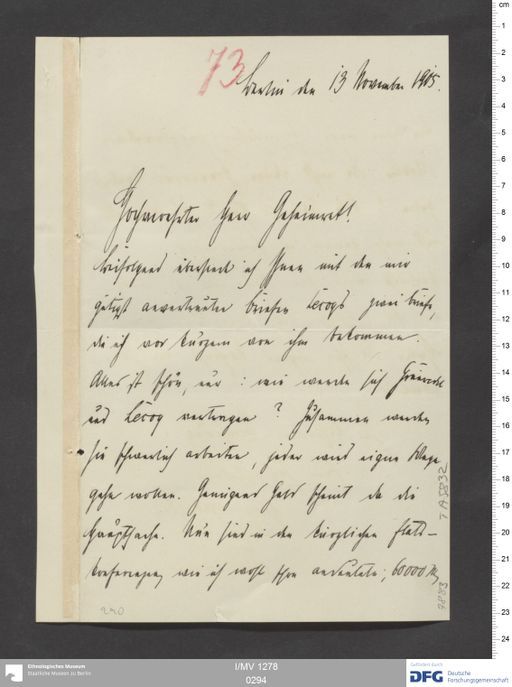 73
Berlin den 13 November 1905.
Hochverehrter Herr Geheimrat!
Beifolgend übersende ich Ihnen mit den mir
gütigst anvertrauten Briefen Lecoqs zwei Briefe,
die ich vor kurzem von ihm bekommen.
Alles ist schön, nur: wie werden sich Grünwedel
und Lecoq vertragen? Zusammen werden
sie schwerlich arbeiten, jeder wird eigne Wege
gehn wollen. Genügend Geld scheint da die
Hauptsache. Nun sind in den kürzlichen
wie ich wohl schon andeutete, 60000 M,
TA 5832
7883
290
Ethnologisches Museum
Staatliche Museen zu Berlin
I/MV 1278
0294
Gefördert durch
DFG Deutsche
Forschungsgemeinschaft
cm
1
2
3
4
5
6
7
8
9
10
11
12
13
14
15
16
17
18
19
20
21
22
23
24